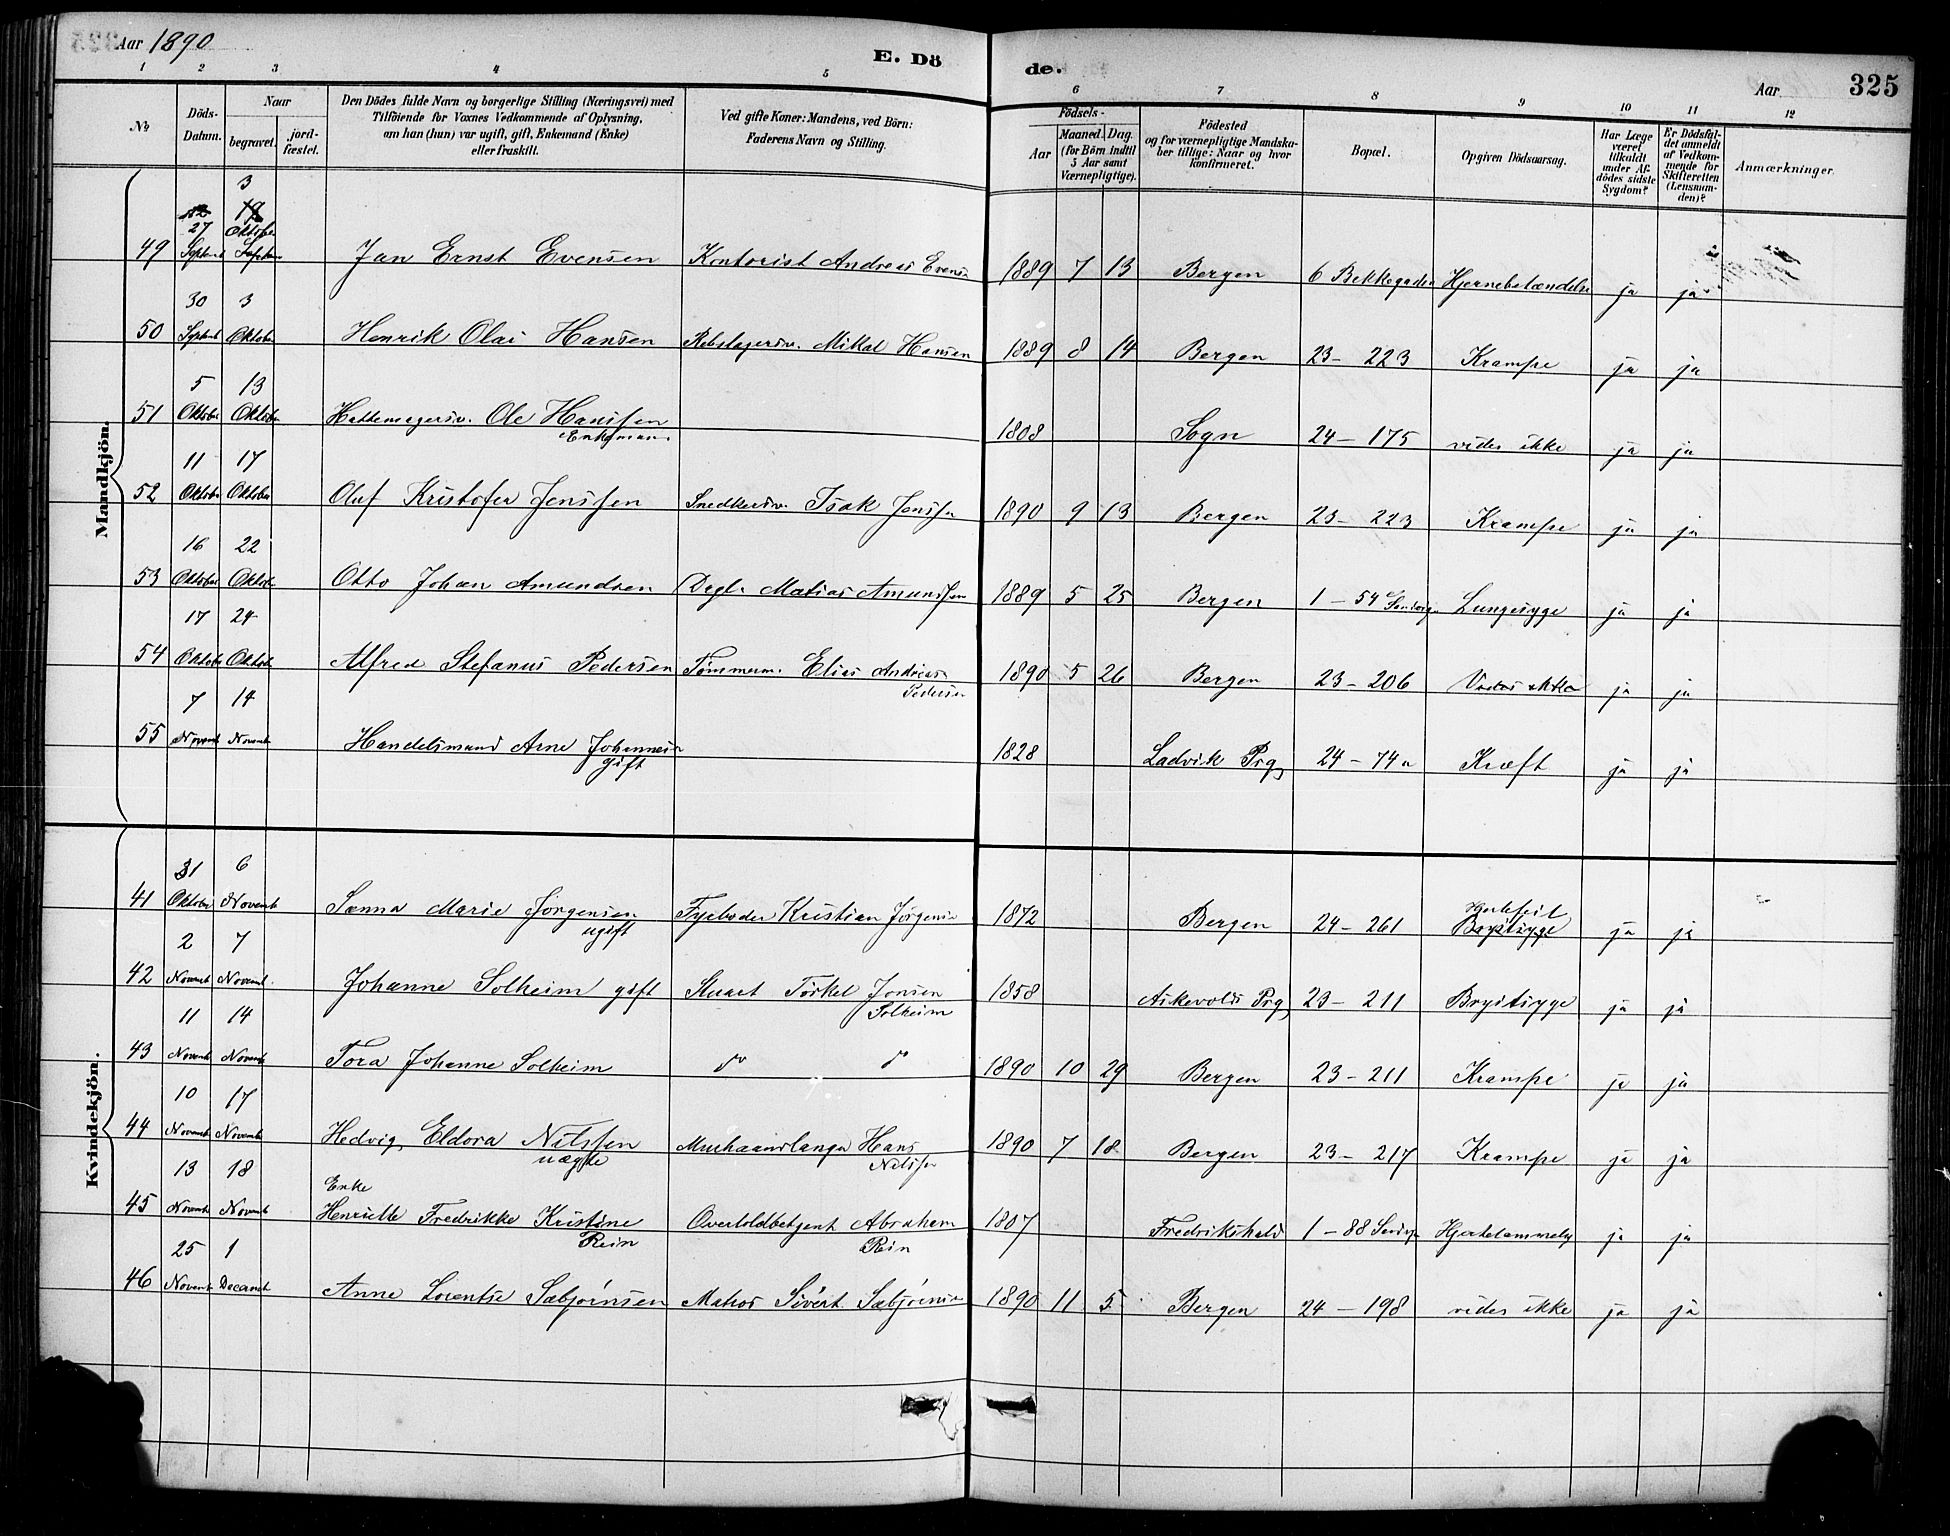 Aar 1890
E. Dö
de.
Aar
325
1 2 3 4 5 6 7 8 9 10 11 12
No
Döds-Datum.
Naar
begravet.
jord-fæstet.
Den Dödes fulde Navn og borgerlige Stilling (Næringsvei) med
Tilföiende for Voxnes Vedkommende af Oplysning,
om han (hun) var ugift, gift, Enkemand (Enke)
eller fraskilt.
Ved gifte Koner: Mandens, ved Börn:
Faderens Navn og Stilling.
Födsels-
Aar
Maaned. Dag.
(for Börn indtil
5 Aar samt
Værnepligtige).
Födested
og for værnepligtige Mandska-
ber tillige: Naar og hvor
konfirmeret.
Bopæl.
Opgiven Dödsaarsag.
Har Læge
været
tilkaldt
under Af-
dödes sidste
Sygdom?
Er Dödsfal-
det anmeldt
af Vedkom-
mende for
Skifteretten
(Lensman-
den)?
Anmærkninger.
Mandkjön.
49 27 Septemb 3 Oktober Jan Ernst Evensen Kontorist Andreas Evens 1889 7 13 Bergen 6 Bekkegaden Hjernebetændelse ja ja
50 30 Septemb 3 Oktober Henrik Olai Hansen Rebslagersv. Mikal Hansen 1889 8 14 Bergen 23 – 223 Krampe ja ja
51 5 Oktober 13 Oktober Hattemagersv. Ole Hanssen 1808 Sogn 24 – 175 vides ikke ja ja
Enkeman
52 11 Oktober 17 Oktober Oluf Kristofer Jenssen Snedkersv. Isak Jenssen 1890 9 13 Bergen 23 – 223 Krampe ja ja
53 16 Oktober 22 Oktober Otto Johan Amundsen Dagl. Matias Amunssen 1889 5 25 Bergen 1 – 54 Lungesyge ja ja
54 17 Oktober 24 Oktober Alfred Stefanus Pedersen Tømmerm. Elias Andreas 1890 5 26 Bergen 23 – 206 ja ja
Pedersen
55 7 Novemb 14 Novemb Handelsmand Arne Johannesen 1828 Ladvik Prg 24 – 74a Kræft ja ja
gift
Kvindekjön.
41 31 Oktober 6 Novemb Sanna Marie Jörgensen Fyrbøder Kristian Jörgensen 1872 Bergen 24 – 261 Hjertefeil ja ja
ugift Brystsyge
42 2 Novemb 7 Novemb Johanne Solheim gift Stuart Torkel Jonsen 1858 Askevolds Prg 23 – 211 Brystsyge ja ja
Solheim
43 11 Novemb 14 Novemb Tora Johanne Solheim do do 1890 10 29 Bergen 23 – 211 Krampe ja ja
44 10 Novemb 17 Novemb Hedvig Eldora Nilssen Murhaandlanger Hans 1890 7 18 Bergen 23 – 217 Krampe ja ja
uægte Nilssen
Enke
45 13 Novemb 18 Novemb Henriette Fredrikke Kristine Overtoldbetjent Abraham 1807 Fredrikshald 1 – 88 ja ja
Rein Rein
46 25 Novemb 1 Decemb Anne Lorentse Sæbjørnsen Matros Sivert Sæbjørnsen 1890 11 5 Bergen 24 – 198 vides ikke ja ja